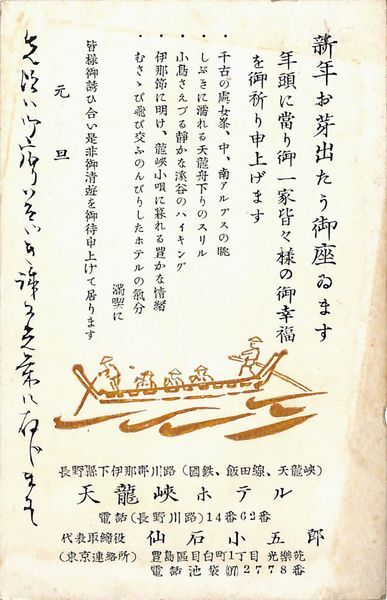 新年お芽出たう御座ゐます
年頭に當り御一家皆々様の御幸福
を御祈り申上げます
・千古の處女峯、中、南アルプスの眺
・しぶきに濡れる天龍舟下りのスリル
・小鳥さえづる靜かな溪谷のハイキング
・伊那節に明け、龍峽小唄に暮れる豊かな情緒
・むさゝび飛び交ふのんびりしたホテルの氣分
滿喫に
皆様御誘ひ合い是非御清遊を御待申上げて居ります
元旦
長野縣下伊那郡川路(國鉄、飯田線、天龍峽)
天龍峽ホテル
電話(長野川路)14番62番
代表取締役 仙石小五郎
(東京連絡所) 豊島區目白町1丁目 光樂苑
電話池袋(97)2778番